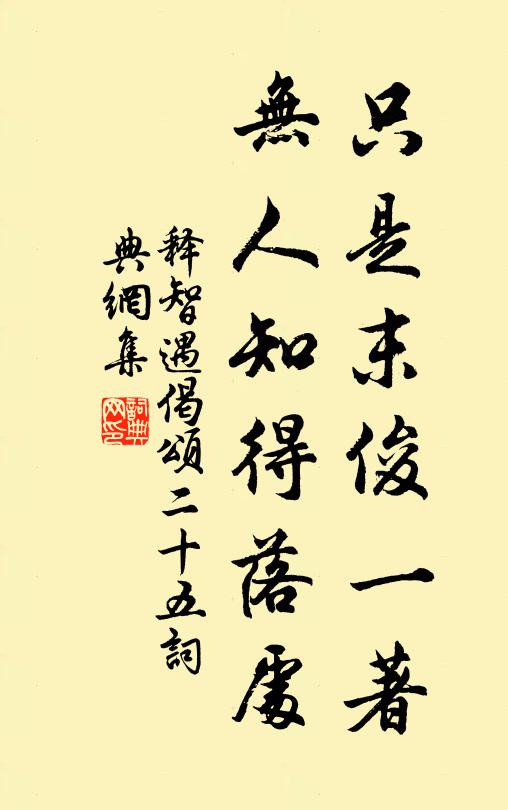 只是末俊一著
無人知得落處
释智遇偈頌二十五詞
典網集
詞典網印